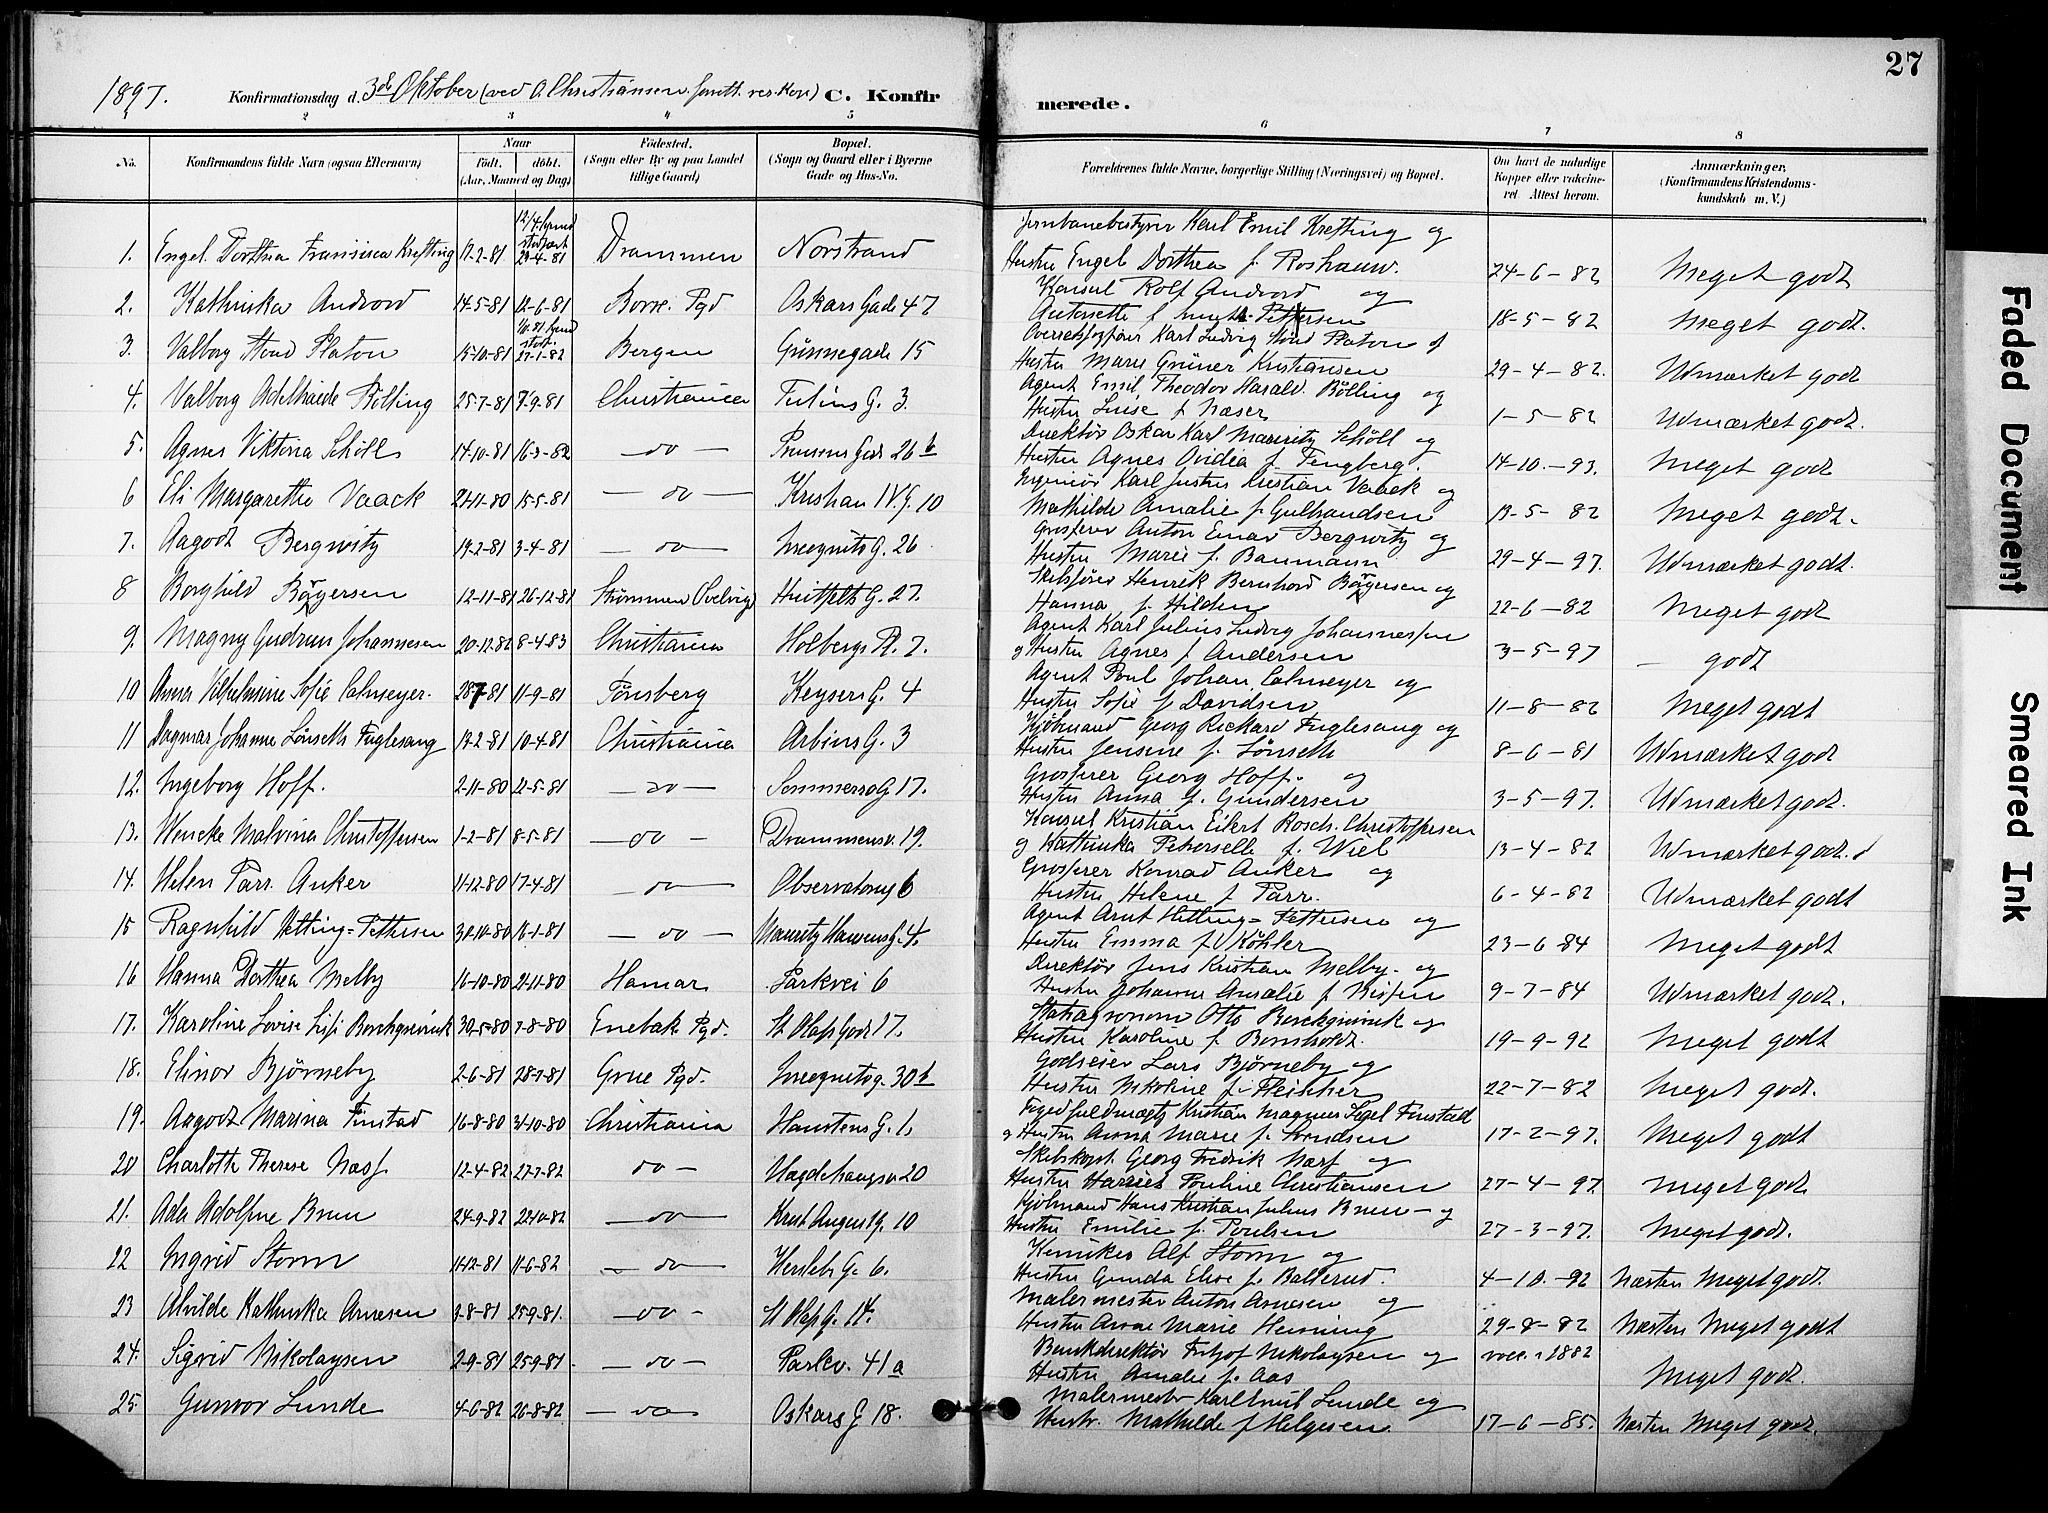 27
1897. Konfirmationsdag d. 3de Oktober (ved O. Christiansen res. kap.) C. Konfirmerede.
2 3 4 5 6 7 8
No. Konfirmandens fulde Navn (ogsaa Efternavn) Naar født. døbt. (Aar, Maaned og Dag) Fødested. (Sogn eller By og paa Landet tillige Gaard) Bopæl. (Sogn og Gaard eller i Byerne Gade og Hus-No. Forældrenes fulde Navne, borgerlige Stilling (Næringsvei) og Bopæl. Om havt de naturlige Kopper eller vaccineret. Attest herom. Anmærkninger. (Konfirmandens Kristendomskundskab m. V.)
1. Engel Dorthea Fransisca Krefting 17-2-81 12/4 hjemd. stadfæst 29-4-81 Drammen Norstrand Jernbanebestyrer Karl Emil Krefting og
Hustru Engel Dorthea f. Roshauw. 24-6-82 Meget godt
2. Kathinka Andvord 14-5-81 12-6-81 Borre Pgd Oskars Gade 47 Konsul Rolf Andvord og
Antonette f. Pettersen 18-5-82 Meget godt.
3. Valborg Stoud Platou 15-10-81 hjemd. stadf. 27-1-82 Bergen Grünnegade 15 Overretssagfører Karl Ludvig Stoud Platou og
Hustru Marie Grüner Kristiansen 29-4-82. Udmærket godt
4. Valborg Adelhaide Bölling 25-7-81 7-9-81 Christiania Tulins G. 3. Agent Emil Theodor Harald Bölling og
Hustru Luise f. Næser 1-5-82 Udmærket godt.
5. Agnes Viktoria Schöll 14-10-81 16-3-82 do Gade 26b Direktör Oskar Karl Maurits Schöll og
Hustru Agnes Ovidia f. Tengberg. 14-10-93. Meget godt
6 Eli Margarethe Vaack 21-11-80 15-5-81 do Kristian IV G. 10 Ingeniör Karl Justus Kristian Vaack og
Mathilde Amalie f. Gulbrandsen 13-5-82 Meget godt.
7. Aagodt Bergwitz 19-2-81 3-4-81 do Incognito G. 26 Grosserer Anton Einar Bergwitz og
Hustru Marie f. Baumann 29-4-97. Udmærket godt.
8 Borghild Bögersen 12-11-81 26-12-81 Strömmen Hvitfelts G. 27. Skibsförer Henrik Bernhard Bögersen og
Hanna f. Hilden 22-6-82 Meget godt
9. Magny Gudrun Johannesen 20-12-82 8-4-83 Christiania Holbergs Pl. 7. Agent Karl Julius Ludvig Johannessen
og Hustru Agnes f. Andersen 3-5-97 — godt
10 Anna Vilhelmine Sofie Calmeyer. 28-7-81 11-9-81 Tönsberg Keysers G. 4 Agent Poul Johan Calmeyer og
Hustru Sofie f. Davidsen 11-8-82 Meget godt
11 Dagmar Johanne Lönseth Fuglesang 19-2-81 10-4-81 Christiania Arbins G. 3 Kjöbmand Georg Rickard Fuglesang og
Hustru Jensine f. Lönseth 8-6-81 Udmærket godt
12. Ingeborg Hoff. 2-11-80 22-5-81 do Sommerro G 17. Grosserer Georg Hoff. og
Hustru Anna f. Gundersen 3-5-97. Udmærket godt.
13. Wencke Malvina Christoffersen 1-2-81 8-5-81 do Drammensv. 19. Konsul Kristian Eilert Rosch. Christoffersen
og Kathinka Petronelle f. Wiel 13-4-82 Udmærket godt.
14. Helen Parr. Anker 11-12-80 17-4-81 do Observatorieg 6 Grosserer Konrad Anker og
Hustru Helene f. Parr. 6-4-82 Udmærket godt
15 Ragnhild Hetting-Pettersen 30-10-80 16-1-81 do Mauritz Hansens G. 4. Agent Arnt Hetting-Pettersen og
Hustru Emma f. Köhler 23-6-84 Meget godt
16 Hanna Dorthea Melby 16-10-80 21-11-80 Hamar Parkvei 6 Direktör Jens Kristian Melby. og
Hustru Johanne Amalie f. 9-7-84 Udmærket godt.
17. Karoline Lovise Borchgrevink 30-5-80 7-8-80 Enebak Pgd. St. Olafs Gade 17. Statsagronom Otto Borchgrevink og
Hustru Karoline f. Bernholdt. 19-9-92 Meget godt
18. Elinor Björneby 2-6-81 28-7-81 Grue Pgd. Incognitog. 30b Godseier Lars Björneby og
Hustru Nikoline f. Fleischer 22-7-82 Meget godt.
19. Aagodt Marina Finstad 16-8-80 31-10-80 Christiania Hanstens G. 1. Fogedfuldmægtig Kristian Magnus Segel Finstad
og Hustru Anna Marie f. 17-2-97. Meget godt
20 Charlotte Therese Næss 12-4-82 27-7-82 do Hagdehaugsv. 20 Skibskapt. Georg Fredrik Næss og
Hustru Harriet Pauline Christiansen 27-4-97. Meget godt
21. Ada Adolfine Bruu 24-9-82 22-10-82 do Krist. August G. 10 Kjöbmand Hans Kristian Julius Bruu og
Hustru Emilie f. Poulsen 27-3-97. Meget godt.
22 Ingrid Storm 11-12-81 11-6-82 do Herslebs G. 6. Kemiker Alf Storm og
Hustru Gunda Elise f. Ballerud. 4-10-92 Næsten Meget godt.
23 Alvilde Kathinka Arnesen 3-8-81 25-9-81. do St Olafs G. 14. Malermester Anton Arnesen og
Hustru Anne Marie Henning 29-8-82 Næsten Meget godt
24. Sigrid Nikolaysen 2-9-81 25-9-81 do Parkv. 41a Bankdirektör Fritjof Nikolaysen og
Hustru Amalie f. Aas vacc. 1882 Meget godt.
25. Gunvor Lunde 4-6-82 26-8-82 do Oskars G 18. Malermester Karl Knut Lunde og
Hustr. Mathilde f Helgesen. 17-6-85. Næsten Meget godt.
Faded Document
Smeared Ink